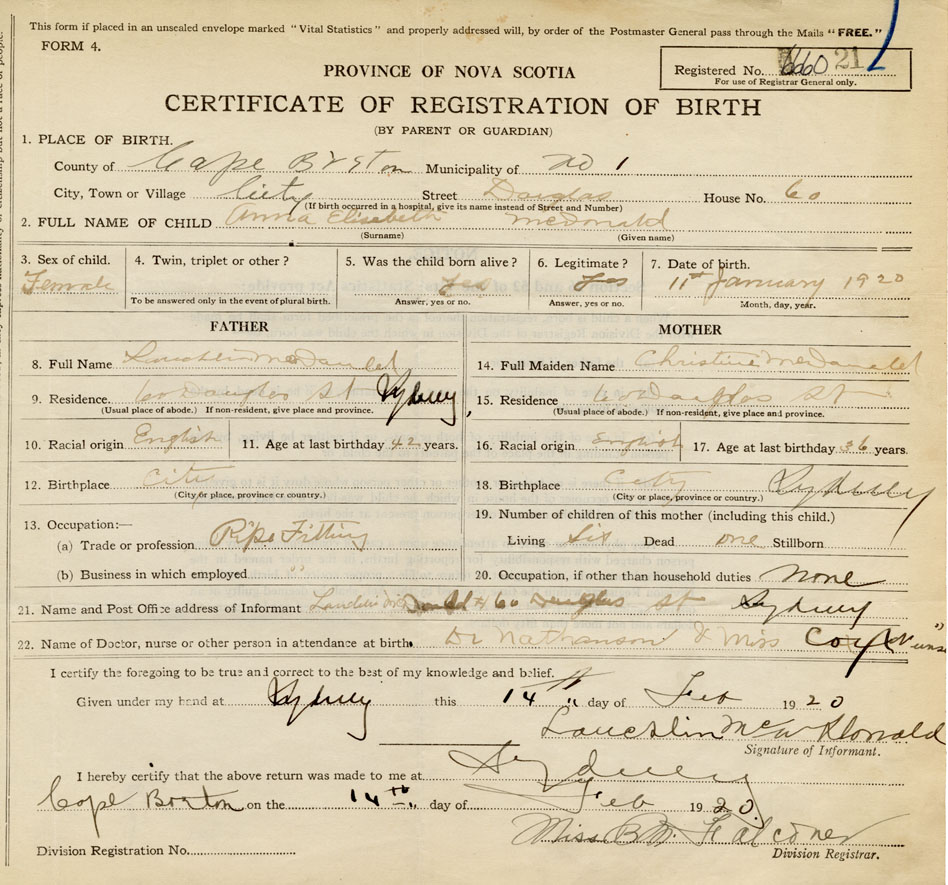 This form if placed in an unsealed envelope marked "Vital Statistics" and properly addressed will, by order of the Postmaster General pass through the Mails "FREE."
FORM 4.
Registered No. 660 21
For use of Registrar General only.
PROVINCE OF NOVA SCOTIA
CERTIFICATE OF REGISTRATION OF BIRTH
(BY PARENT OR GUARDIAN)
1. PLACE OF BIRTH.
County of Cape Breton Municipality of no 1
City, Town or Village City Street Douglas House No. 60
(If birth occurred in a hospital, give its name instead of Street and Number)
2. FULL NAME OF CHILD Anna Elisebeth McDonald
(Surname) (Given name)
3. Sex of child. 4. Twin, triplet or other? 5. Was the child born alive? 6. Legitimate? 7. Date of birth.
Female Yes Yes 11st January 1920
To be answered only in the event of plural birth. Answer, yes or no. Answer, yes or no. Month, day, year.
FATHER MOTHER
8. Full Name Lauchlin McDonald 14. Full Maiden Name Christine McDonald
9. Residence. 60 Douglas St Sydney 15. Residence 60 Douglas St
(Usual place of abode.) If non-resident, give place and province. (Usual place of abode.) If non-resident, give place and province.
10. Racial origin English 11. Age at last birthday 42 years. 16. Racial origin English 17. Age at last birthday 36 years.
12. Birthplace City 18. Birthplace City Sydney
(City or place, province or country.) (City or place, province or country.)
13. Occupation:— 19. Number of children of this mother (including this child.)
(a) Trade or profession Pipe Fitting Living Six Dead one Stillborn
(b) Business in which employed " 20. Occupation, if other than household duties none
21. Name and Post Office address of Informant Lauchlin McDonald 60 Douglas St Sydney
22. Name of Doctor, nurse or other person in attendance at birth. Dr Nathanson & Miss Coyle Nurse
I certify the foregoing to be true and correct to the best of my knowledge and belief.
Given under my hand at Sydney this 14th day of Feb 1920
Lauchlin McDonald
Signature of Informant.
I hereby certify that the above return was made to me at Sydney
Cape Breton on the 14th day of Feb 1920.
Miss B. M. Falconer
Division Registration No. Division Registrar.